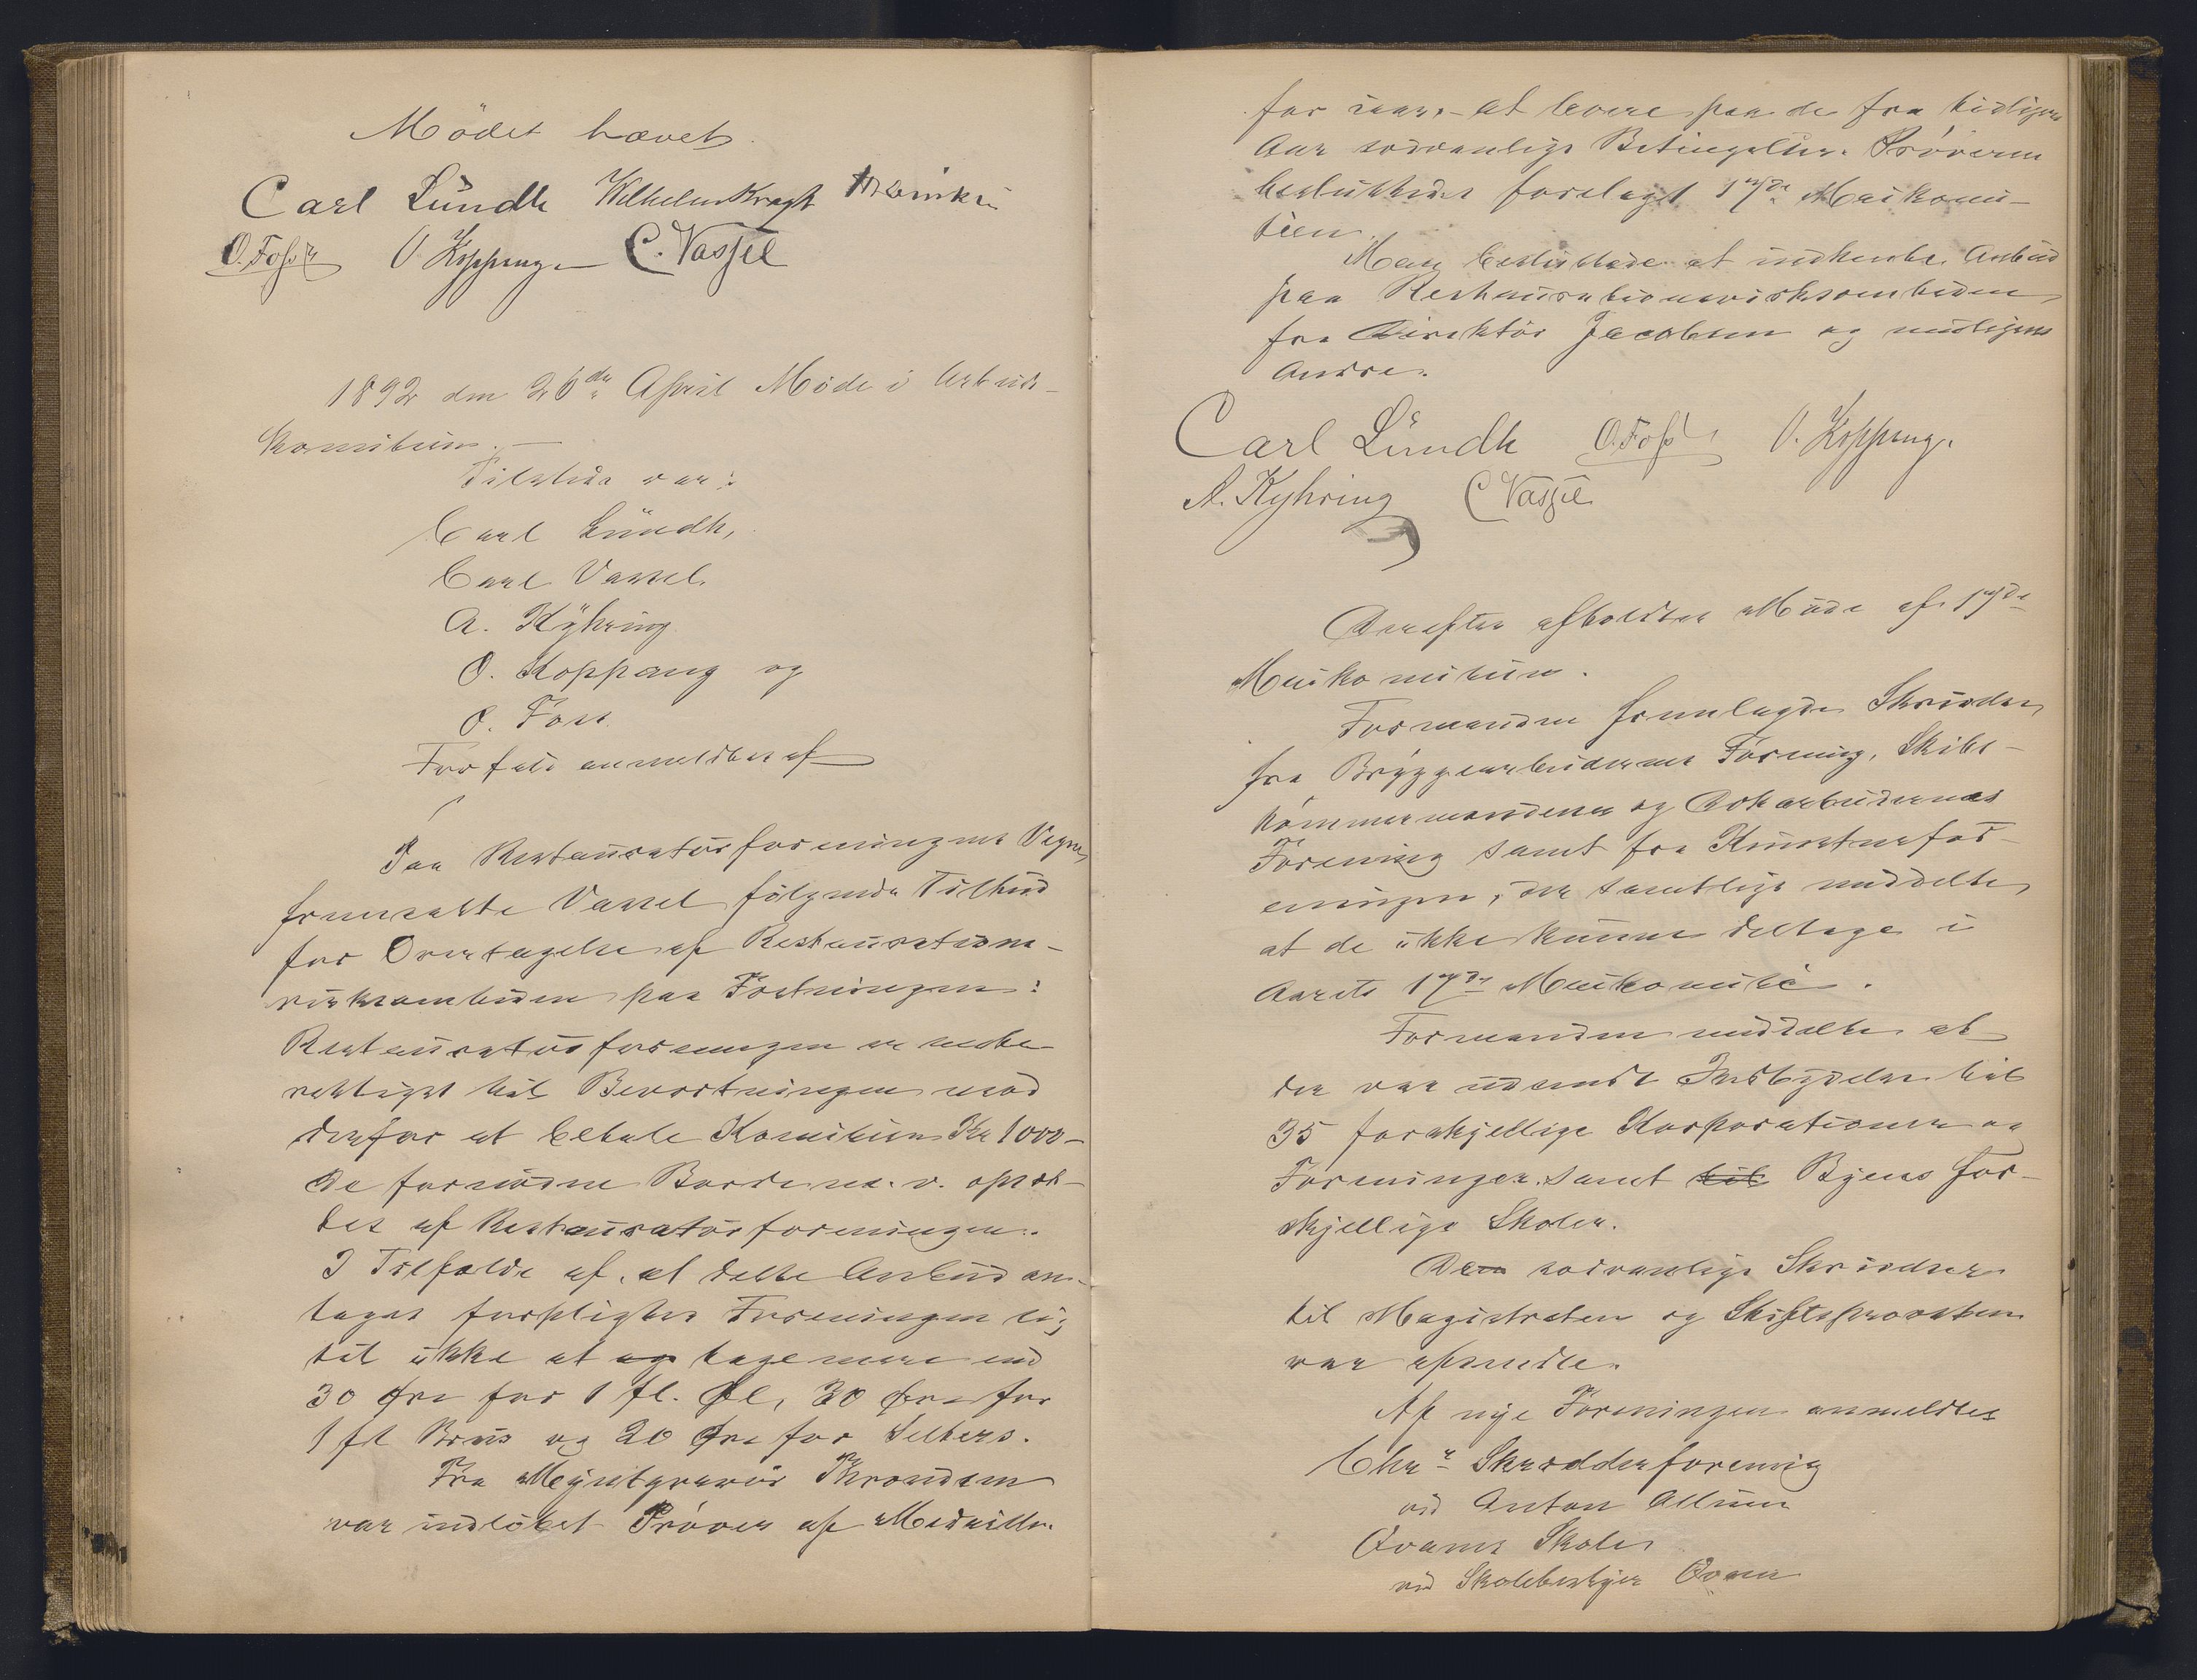 Mödet hævet.
Carl Lündh Wilhelm Kragh
O. Foss O. Koppang C. Vassel
1892 den 26de April Möde i Arbeids-
komiteen. —
Tilstede var:
Carl Lündh,
Carl Vassel.
A. Kÿhring
O. Koppang og
O. Foss.
Forfald anmeldtes af
Paa Restauratörforeningens Vegne
fremsatte Vassel fölgende Tilbud
for Overtagelse af Restaurations-
virksomheden paa Festningen:
Restauratörforeningen er ene be-
rettiget til Bevertningen mod
derfor at betale Komiteen Kr 1000-
De fornödne Borde m. v. opsæt-
tes af Restauratörforeningen.
I Tilfælde af, at dette Anbud an-
tages forpligter Foreningen sig
til ikke at tage mere end
30 Øre for 1 fl. Øl, 30 Øre for
1 fl Brus og 20 Øre for Selters.
Fra Myntgravör Throndsen
var indlöbet Pröver af Medailler
for iaar at levere paa de fra tidligere
Aar sedvanlige Betingelser. Pröverne
besluttedes forelagt 17de Maikomi-
teen.
Man besluttede at indhente Anbud
paa Restaurationsvirksomheden
fra Direktör Jacobsen og muligens
Andre.
Carl Lündh O. Foss O. Koppang.
A. Kyhring C Vassel
Derefter afholdtes Möde af 17de
Maikomiteen.
Formanden fremlagde Skrivelser
fra Bryggearbeidernes Forening, Skibs-
tömmermændenes og Dokarbeidernes
Forening samt fra Kunstnerfor-
eningen, der samtlige meddelte
at de ikke kunne deltage i
Aarets 17de Maikomité.
Formanden meddelte at
der var udsendt Indbydelser til
35 forskjellige Korporationer og
Foreninger samt til Byens for-
skjellige Skoler.
De sedvanlige Skrivelser
til Magistraten og Stiftsprovsten
var afsendte.
Af nye Foreninger anmeldtes
Chra Skrædderforening
ved Anton Allum
Qvams Skole
ved Skolebestyrer Qvam